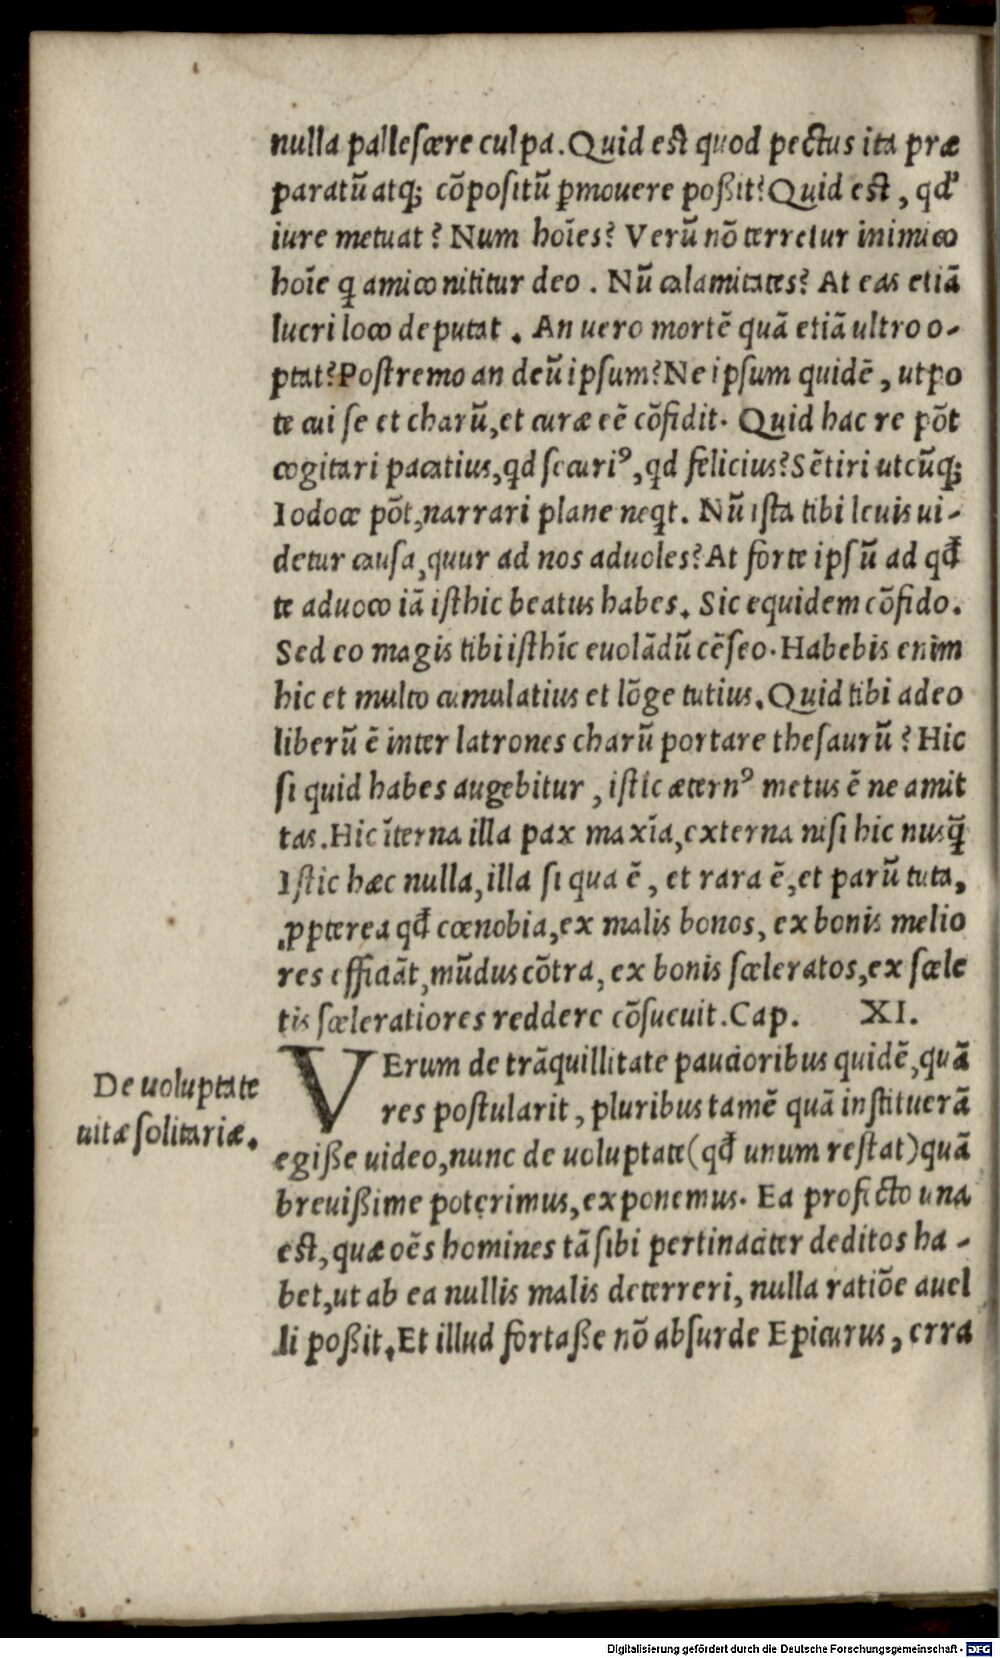 nulla pallescere culpa. Quid est quod pectus ita præ
paratũ atq; cõpositũ ꝑmouere poßit? Quid est, qd'
iure metuat? Num hoĩes? Verũ nõ terretur inimico
hoĩe q amico nititur deo. Nũ calamitates? At eas etiã
lucri loco deputat. An uero mortẽ quã etiã ultro o-
ptat? Postremo an deũ ipsum? Ne ipsum quidẽ, utpo
te cui se et charũ, et curæ eẽ cõfidit. Quid hac re põt
cogitari pacatius, qd securiꝰ, qd felicius? Sẽtiri utcũq;
Iodoce põt, narrari plane neqt. Nũ ista tibi leuis ui-
detur causa, quur ad nos aduoles? At forte ipsũ ad qđ
te aduoco iã isthic beatus habes. Sic equidem cõfido.
Sed eo magis tibi isthĩc euolãdũ cẽseo. Habebis enim
hic et multo cumulatius et lõge tutius. Quid tibi adeo
liberũ ẽ inter latrones charũ portare thesaurũ? Hic
si quid habes augebitur, istic æternꝰ metus ẽ ne amit
tas. Hic ĩterna illa pax maxĩa, externa nisi hic nusq̃
Istic hæc nulla, illa si qua ẽ, et rara ẽ, et parũ tuta,
ꝓpterea qđ cœnobia, ex malis bonos, ex bonis melio
res efficiãt, mũdus cõtra, ex bonis sceleratos, ex scele
tis sceleratiores reddere cõsueuit. Cap. XI.
De uoluptate
uitæ solitariæ.
VErum de trãquillitate paucioribus quidẽ, quã
res postularit, pluribus tamẽ quã institueram̃
egiße uideo, nunc de uoluptate (qđ unum restat) quã
breuißime poterimus, exponemus. Ea profecto una
est, quæ oẽs homines tã sibi pertinaciter deditos ha-
bet, ut ab ea nullis malis deterreri, nulla ratiõe auel
li poßit. Et illud fortaße nõ absurde Epicurus, erra
Digitalisierung gefördert durch die Deutsche Forschungsgemeinschaft - DFG